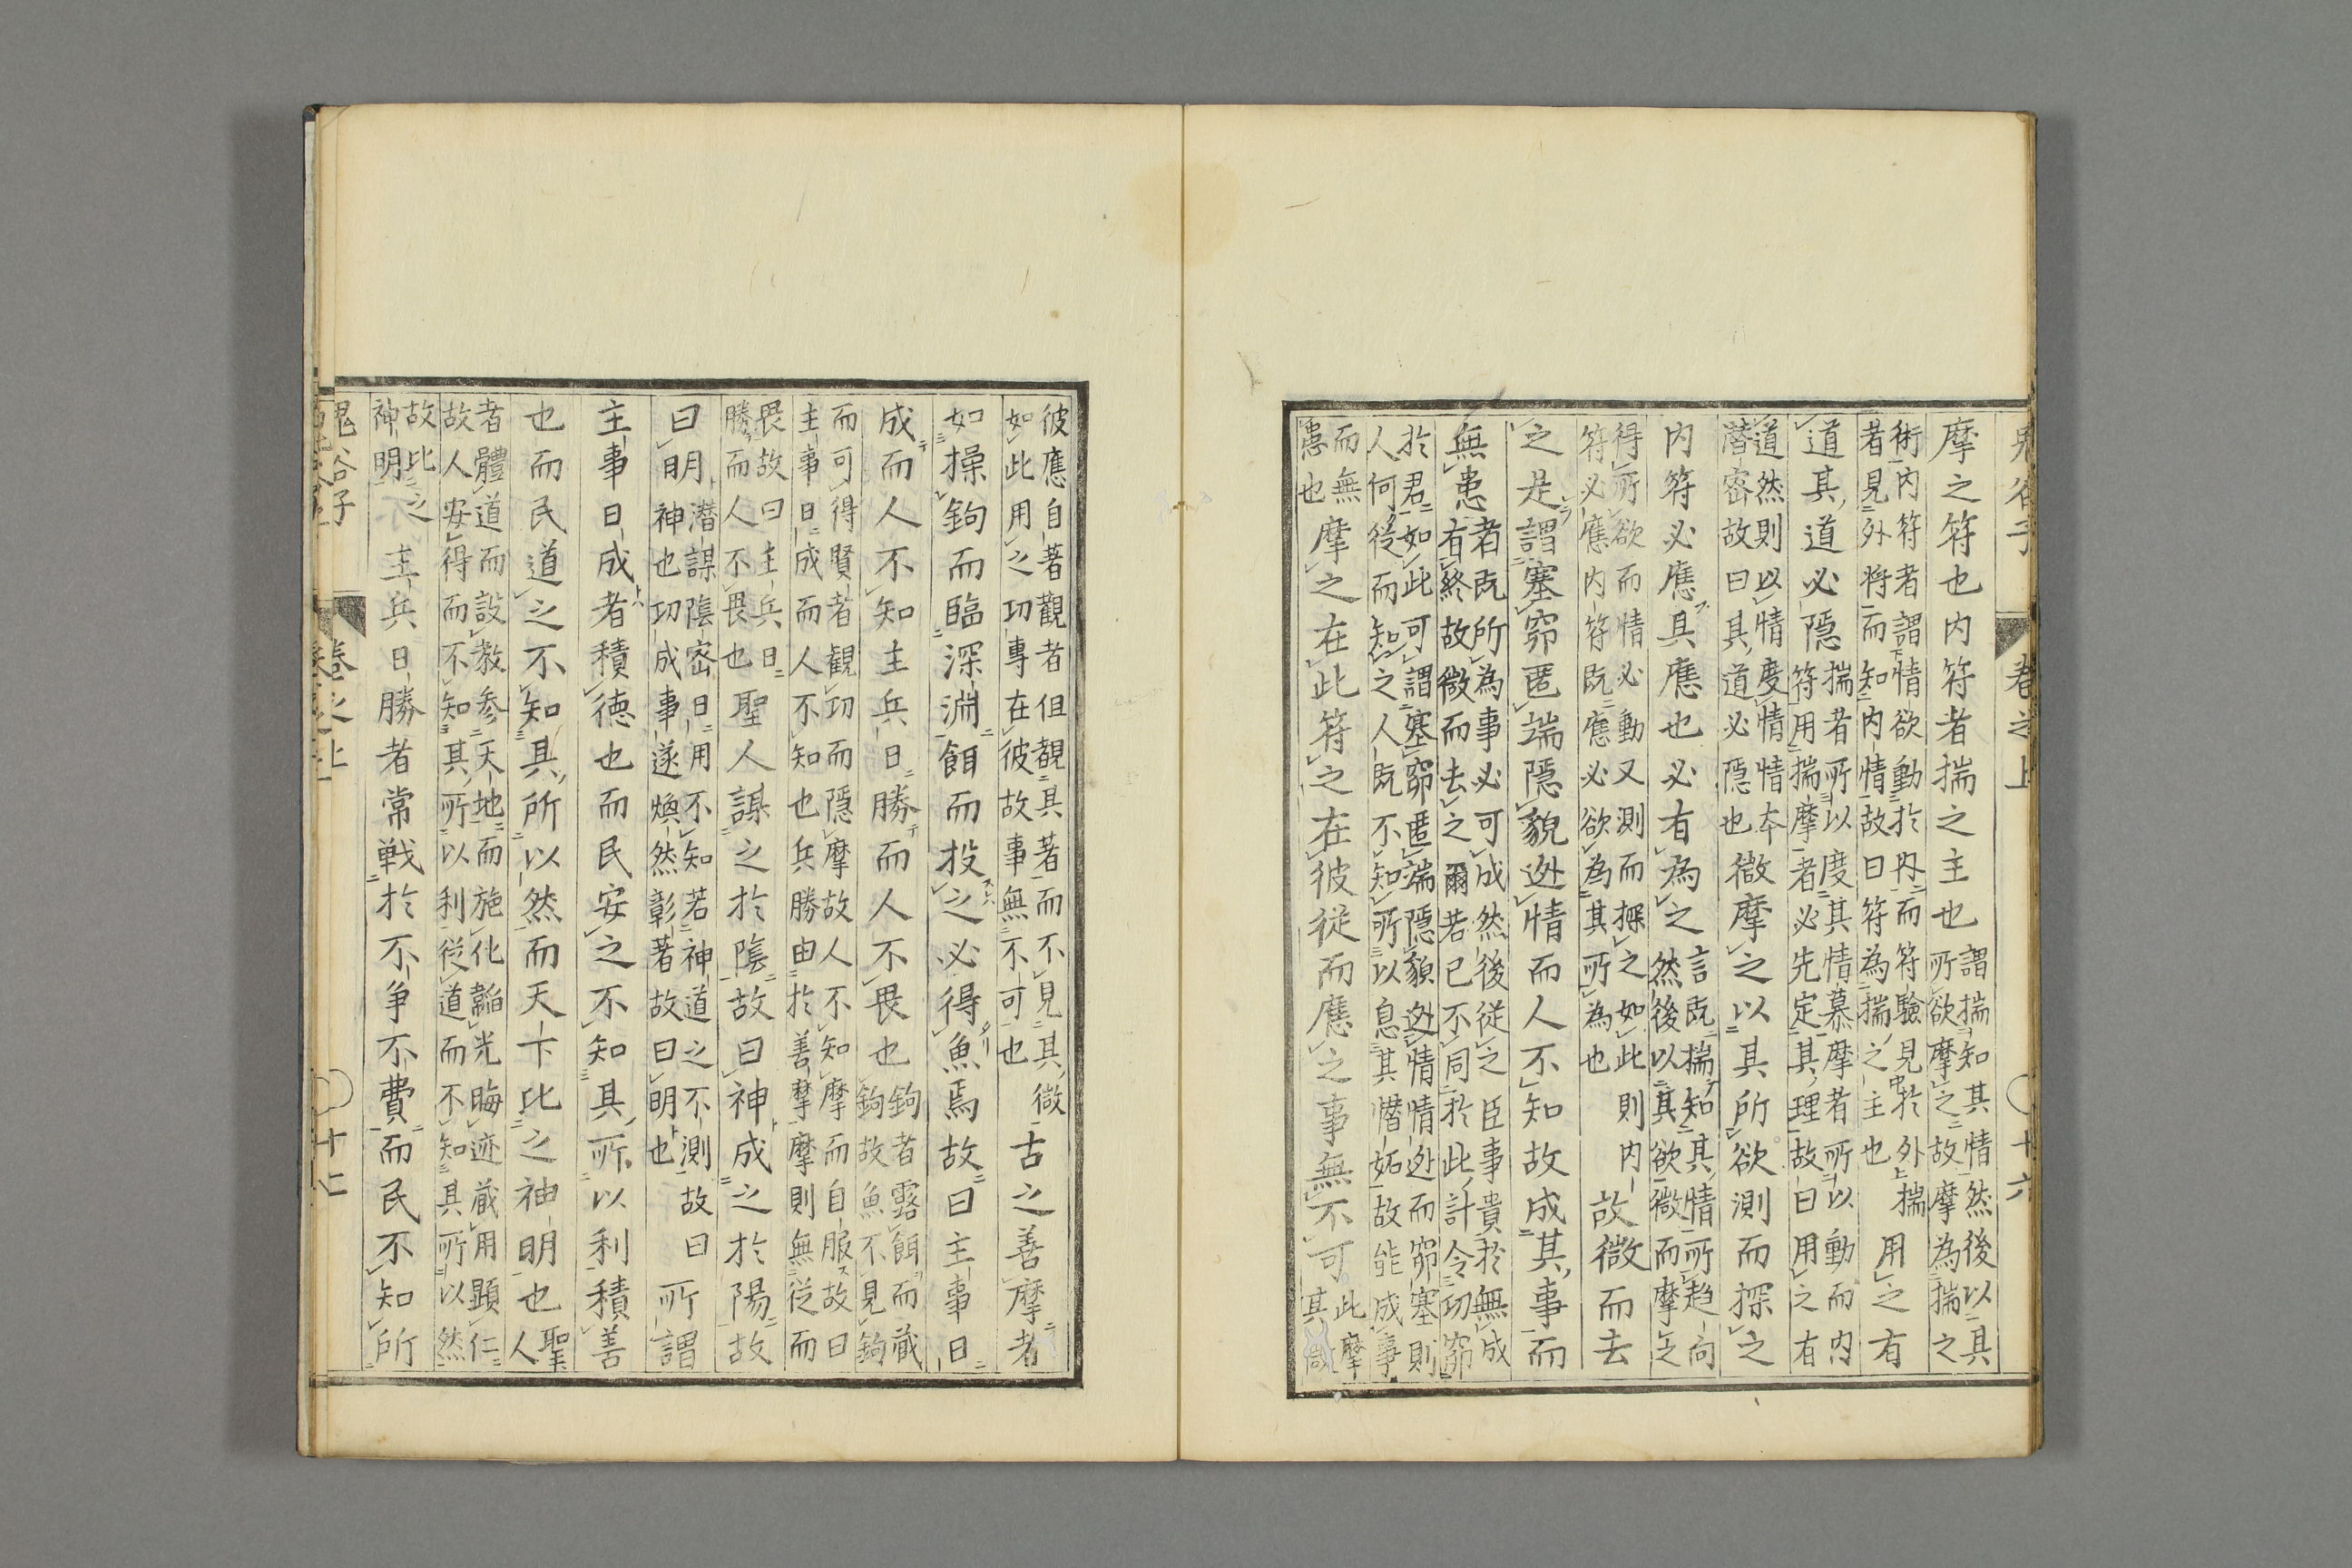 鬼谷子 卷之上 十六
摩之符也內符者揣之主也謂揣知其情然後以其所欲摩之故摩為揣之
術內符者謂情欲動於內而符驗見於外揣者見外符而知內情故曰符為揣之主也用之有
道其道必隱揣者所以度其情慕摩者所以動而內符用揣摩者必先定其理故曰用之有
道然則以情度情情本潛密故曰其道必隱也微摩之以其所欲測而探之
內符必應其應也必有為之言既揣知其情所趨向然後以其欲微而摩之
得所欲而情必動又測而探之如此則內符必應內符既應必欲為其所為也故微而去
之是謂塞窌匿端隱貌逃情而人不知故成其事而
無患者既所為事必可成然後從之臣事貴於無成有終故微而去之爾若已不同於此計令功窌
於君如此可謂塞窌匿端隱貌逃情情逃而窌塞則人何從而知之人既不知所以息其僭妬故能成事
而無患也摩之在此符之在彼從而應之事無不可此摩其
彼應自著觀者但覩其著而不見其微如此用之功專在彼故事無不可也古之善摩者
如操鉤而臨深淵餌而投之必得魚焉故曰主事日
成而人不知主兵日勝而人不畏也鉤者露餌而藏鉤故魚不見鉤
而可得賢者觀功而隱摩故人不知摩而自服故曰主事日成而人不知也兵勝由於善摩摩則無從而
畏故曰主兵日勝而人不畏也聖人謀之於陰故曰神成之於陽故
曰明潛謀陰密日用不知若神道之不測故曰神也功成事遂煥然彰著故曰明也所謂
主事日成者積德也而民安之不知其所以利積善
也而民道之不知其所以然而天下比之神明也聖人
者體道而設教參天地而施化韜光晦迹藏用顯仁故人安得而不知其所以利從道而不知其所以然
故比之神明主兵日勝者常戰於不爭不費而民不知所
鬼谷子 卷之上